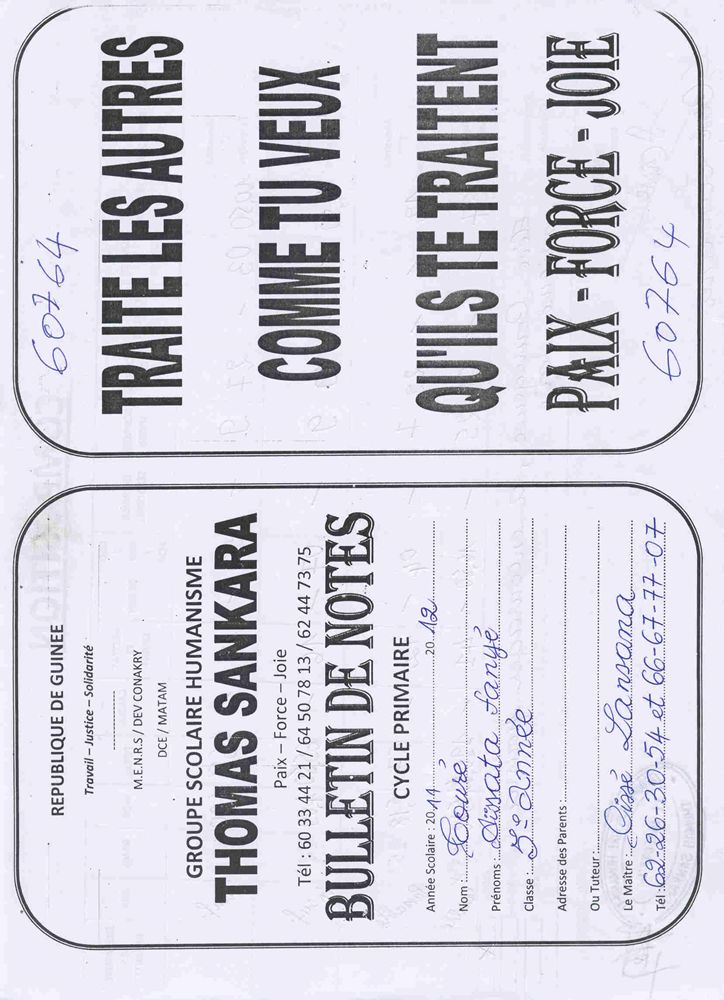 60764
TRAITE LES AUTRES
COMME TU VEUX
QU'ILS TE TRAITENT
PAIX - FORCE - JOIE
60764
REPUBLIQUE DE GUINEE
Travail – Justice – Solidarité
M.E.N.R.S / DEV CONAKRY
DCE / MATAM
GROUPE SCOLAIRE HUMANISME
THOMAS SANKARA
Paix – Force – Joie
Tél : 60 33 44 21 / 64 50 78 13 / 62 44 73 75
BULLETIN DE NOTES
CYCLE PRIMAIRE
Année Scolaire : 2011 20 12
Nom :
Prénoms : Aïssata fanyé
Classe : 5è Année
Adresse des Parents :
Ou Tuteur :
Le Maître : Cissé Lansana
Tél : 62-26-30-54 et 66-67-77-07